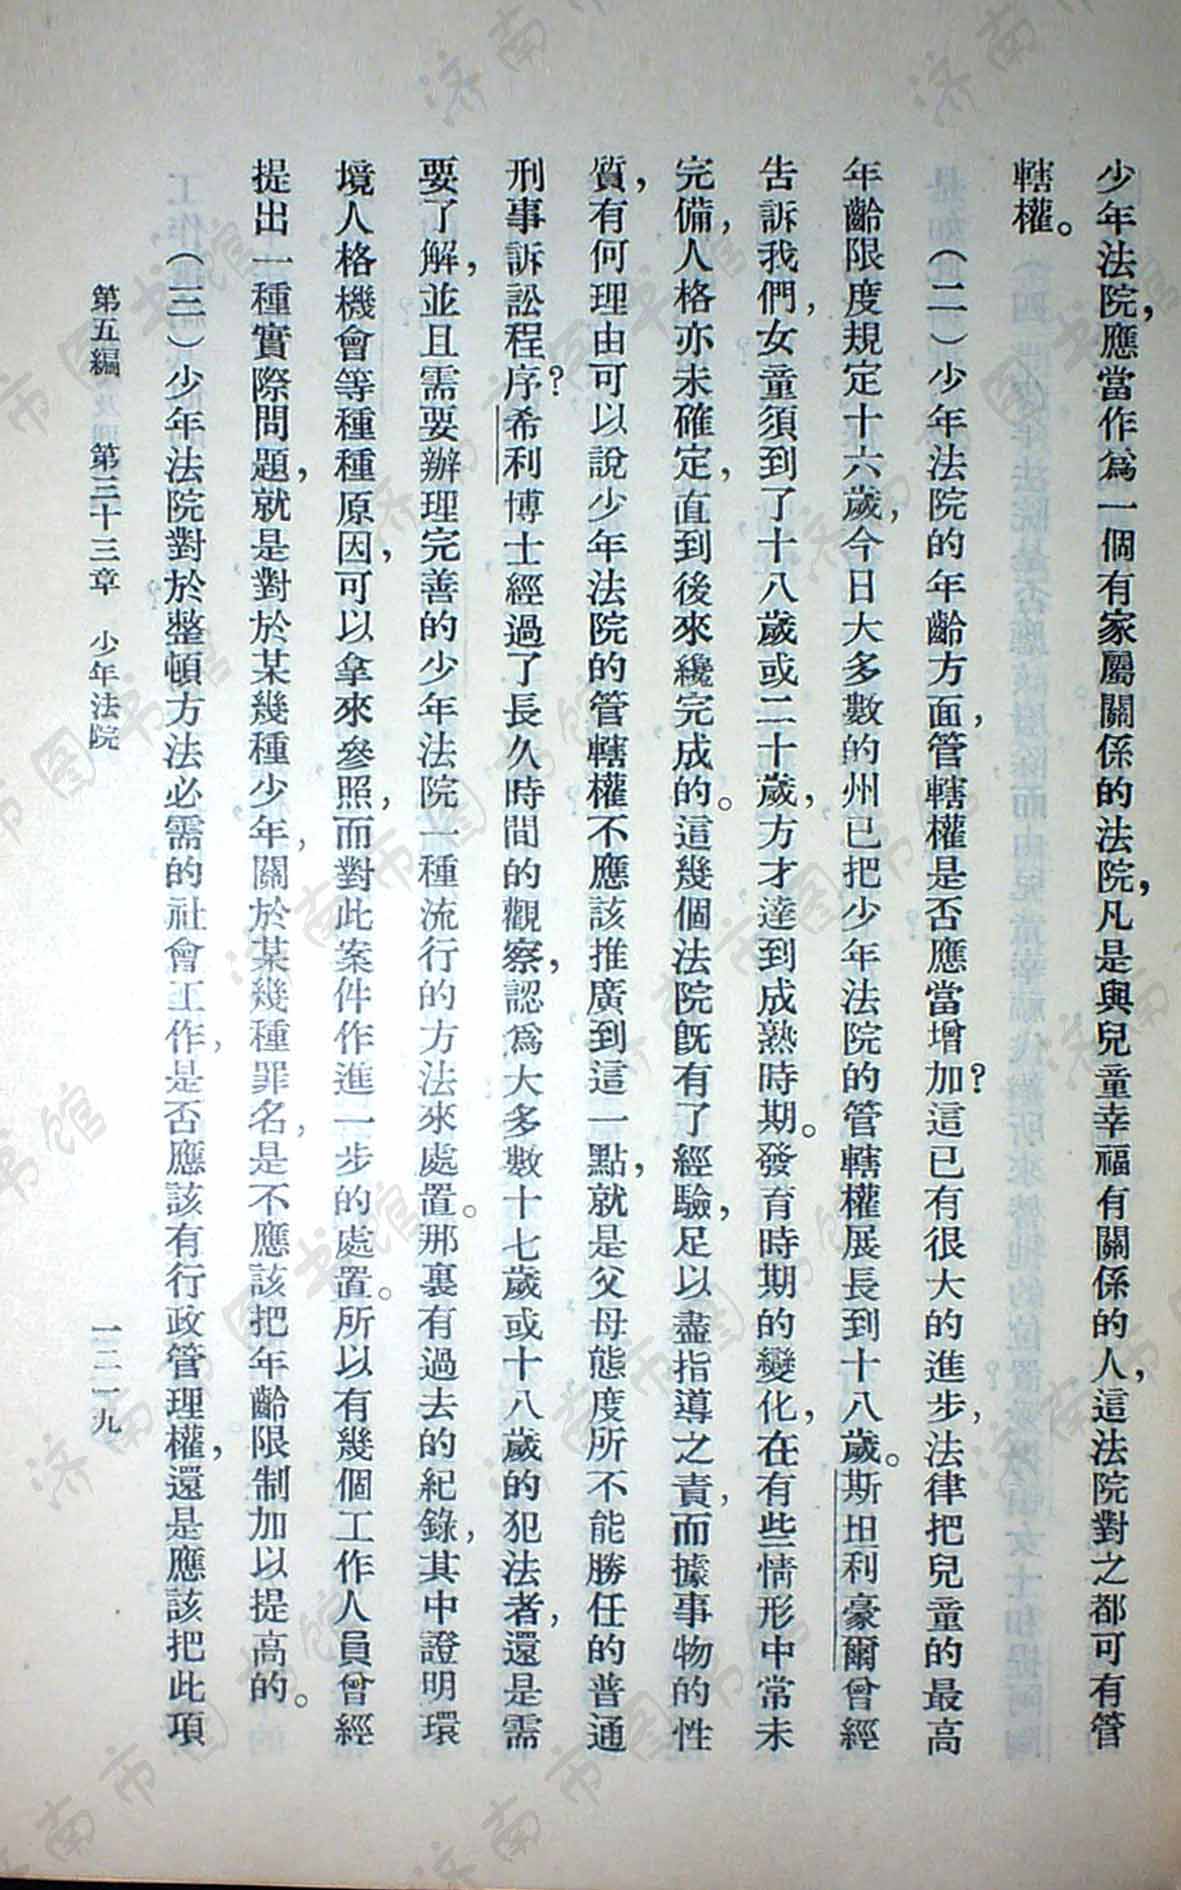 少年法院，應當作爲一個有家屬關係的法院，凡是與兒童幸福有關係的人，這法院對之都可有管
轄權。
（二）少年法院的年齡方面，管轄權是否應當增加？這已有很大的進步，法律把兒童的最高
年齡限度規定十六歲，今日大多數的州已把少年法院的管轄權展長到十八歲。斯坦利豪爾曾經
告訴我們，女童須到了十八歲或二十歲，方才達到成熟時期。發育時期的變化，在有些情形中常未
完備，人格亦未確定，直到後來纔完成的。這幾個法院旣有了經驗，足以盡指導之責，而據事物的性
質，有何理由可以說少年法院的管轄權不應該推廣到這一點，就是父母態度所不能勝任的普通
刑事訴訟程序？希利博士經過了長久時間的觀察，認爲大多數十七歲或十八歲的犯法者，還是需
要了解，並且需要辦理完善的少年法院一種流行的方法來處置。那裏有過去的紀錄，其中證明環
境人格機會等種種原因，可以拿來參照，而對此案件作進一步的處置。所以有幾個工作人員曾經
提出一種實際問題，就是對於某幾種少年，關於某幾種罪名，是不應該把年齡限制加以提高的。
（三）少年法院對於整頓方法必需的社會工作，是否應該有行政管理權，還是應該把此項
第五編　第三十三章　少年法院　一二一九
濟南市图书馆